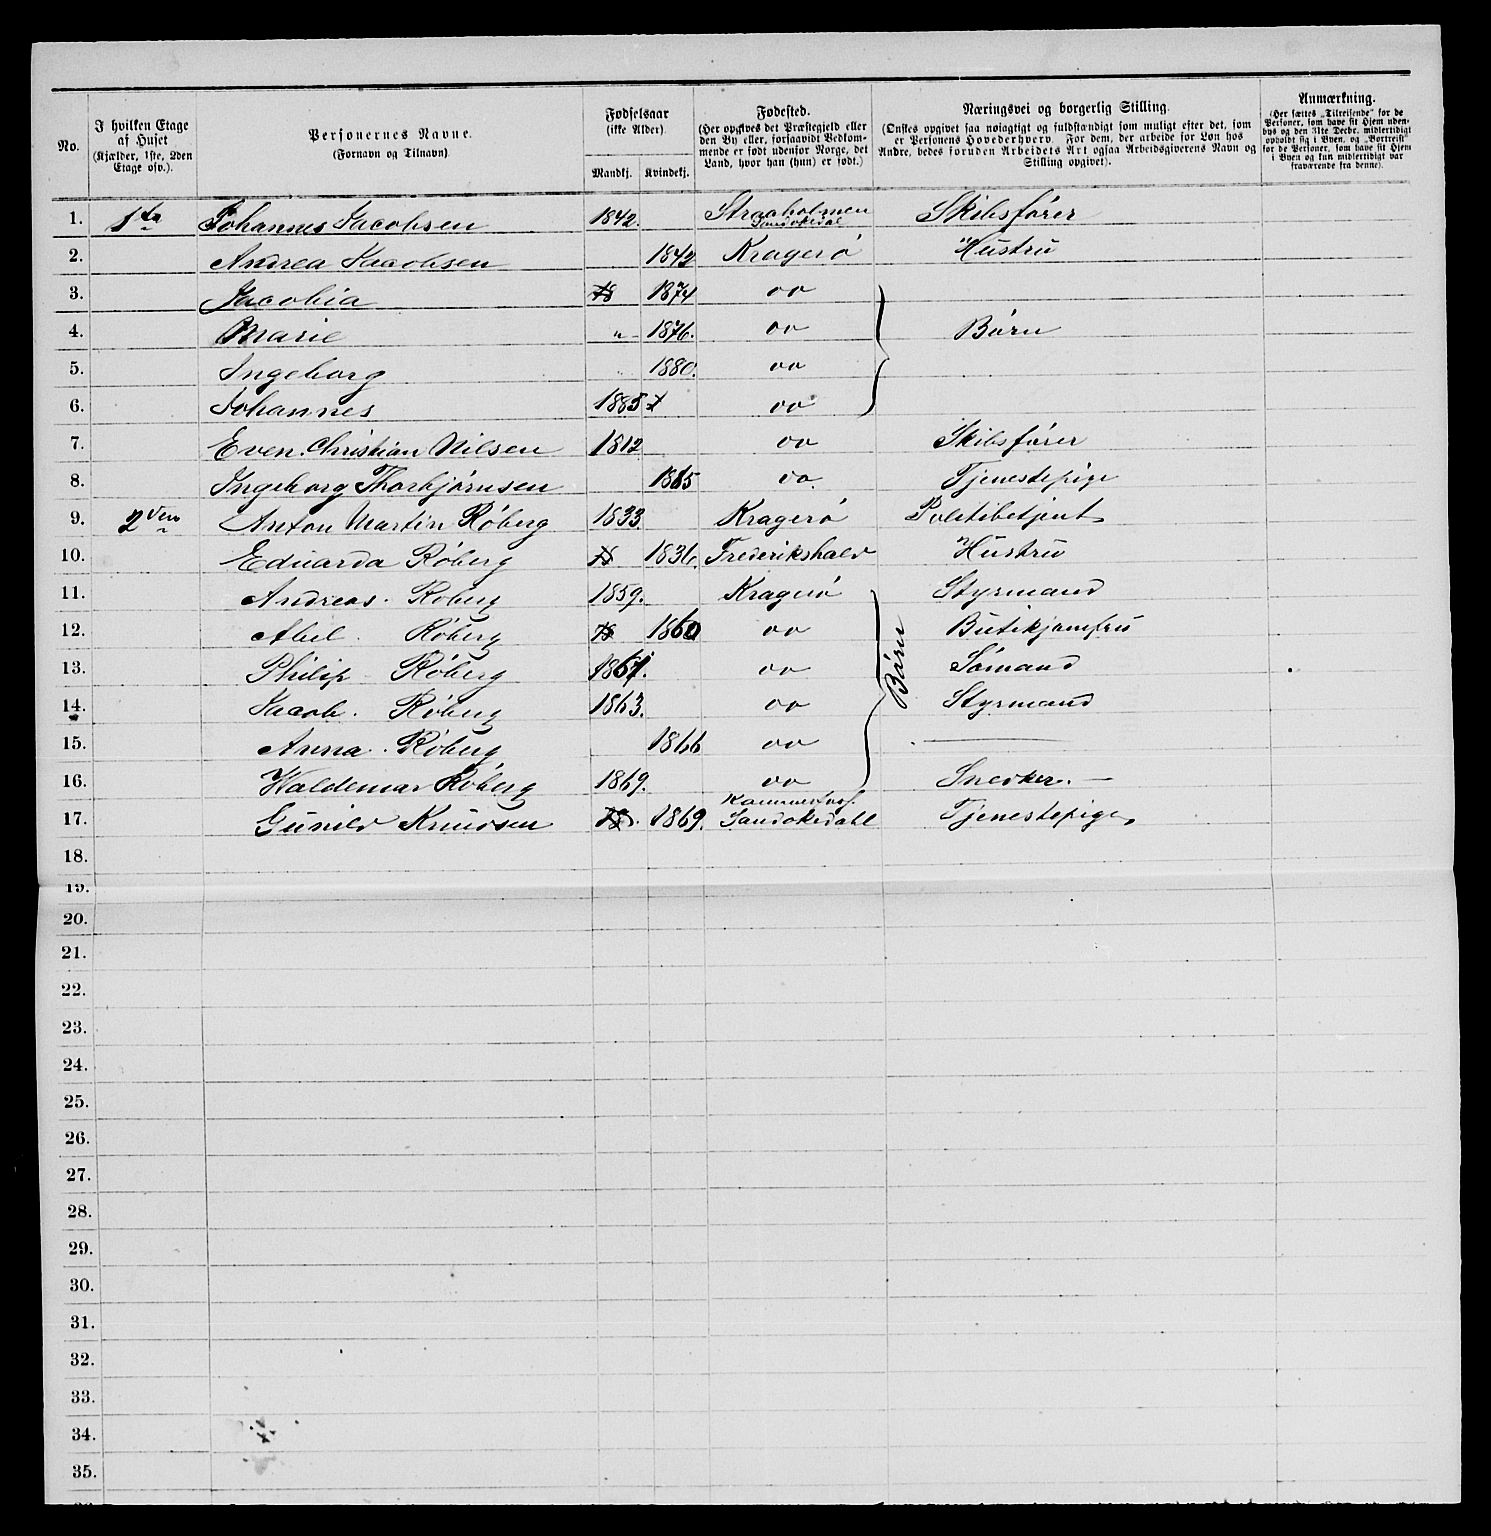 No.
I hvilken Etage
af Huset
(Kjælder, 1ste, 2den
Etage osv.).
Personernes Navne.
(Fornavn og Tilnavn)
Fødselsaar
(ikke Alder).
Mandkj. Kvindekj.
Fødested.
(Her opgives det Præstegjeld eller
den By eller, forsaavidt Vedkom-
mende er født udenfor Norge, det
Land, hvor han (hun) er født.)
Næringsvei og borgerlig Stilling.
(Ønskes opgivet saa nøiagtigt og fuldstændigt som muligt efter det, som
er Personens Hovederhverv. For dem, der arbeide for Løn hos
Andre, bedes foruden Arbeidets Art ogsaa Arbeidsgiverens Navn og
Stilling opgivet).
Anmærkning.
(Her sættes „Tilreisende“ for de
Personer, som have sit Hjem uden-
bys og den 31te Decbr. midlertidigt
opholdt sig i Byen, og „Bortreist“
for de Personer, som have sit Hjem
i Byen og kun midlertidigt var
fraværende fra denne).
1. 1ste Johannes Jacobsen 1842. Straaholmen Sandøkedal Skibsfører
2. Andrea Jacobsen 1842 Kragerø Hustru
3. Jacobia 1874 do
4. Marie " 1876. do Børn
5. Ingeborg 1880. do
6. Johannes 1883 do
7. Even Christian Nilsen 1812 do Skibsfører
8. Ingeborg Thorbjørnsen 1865 do. Tjenestepige
9. 2den Anton Martin Røberg 1833 Kragerø Politibetjent
10. Eduarda Røberg 1836. Frederikshald Hustru
11. Andreas. Røberg 1859. Kragerø Styrmand
12. Abel. Røberg 1860 do Butikjomfru
13. Philip Røberg 1861. do Børn Sømand
14. Jacob. Røberg 1863. do Styrmand
15. Anna. Røberg 1866 do
16. Waldemar Røberg 1869. do Snedker.
17. Gunild Knudsen 1869. Sandøkedahl Tjenestepige
18.
19.
20.
21.
22.
23.
24.
25.
26.
27.
28.
29.
30.
31.
32.
33.
34.
35.